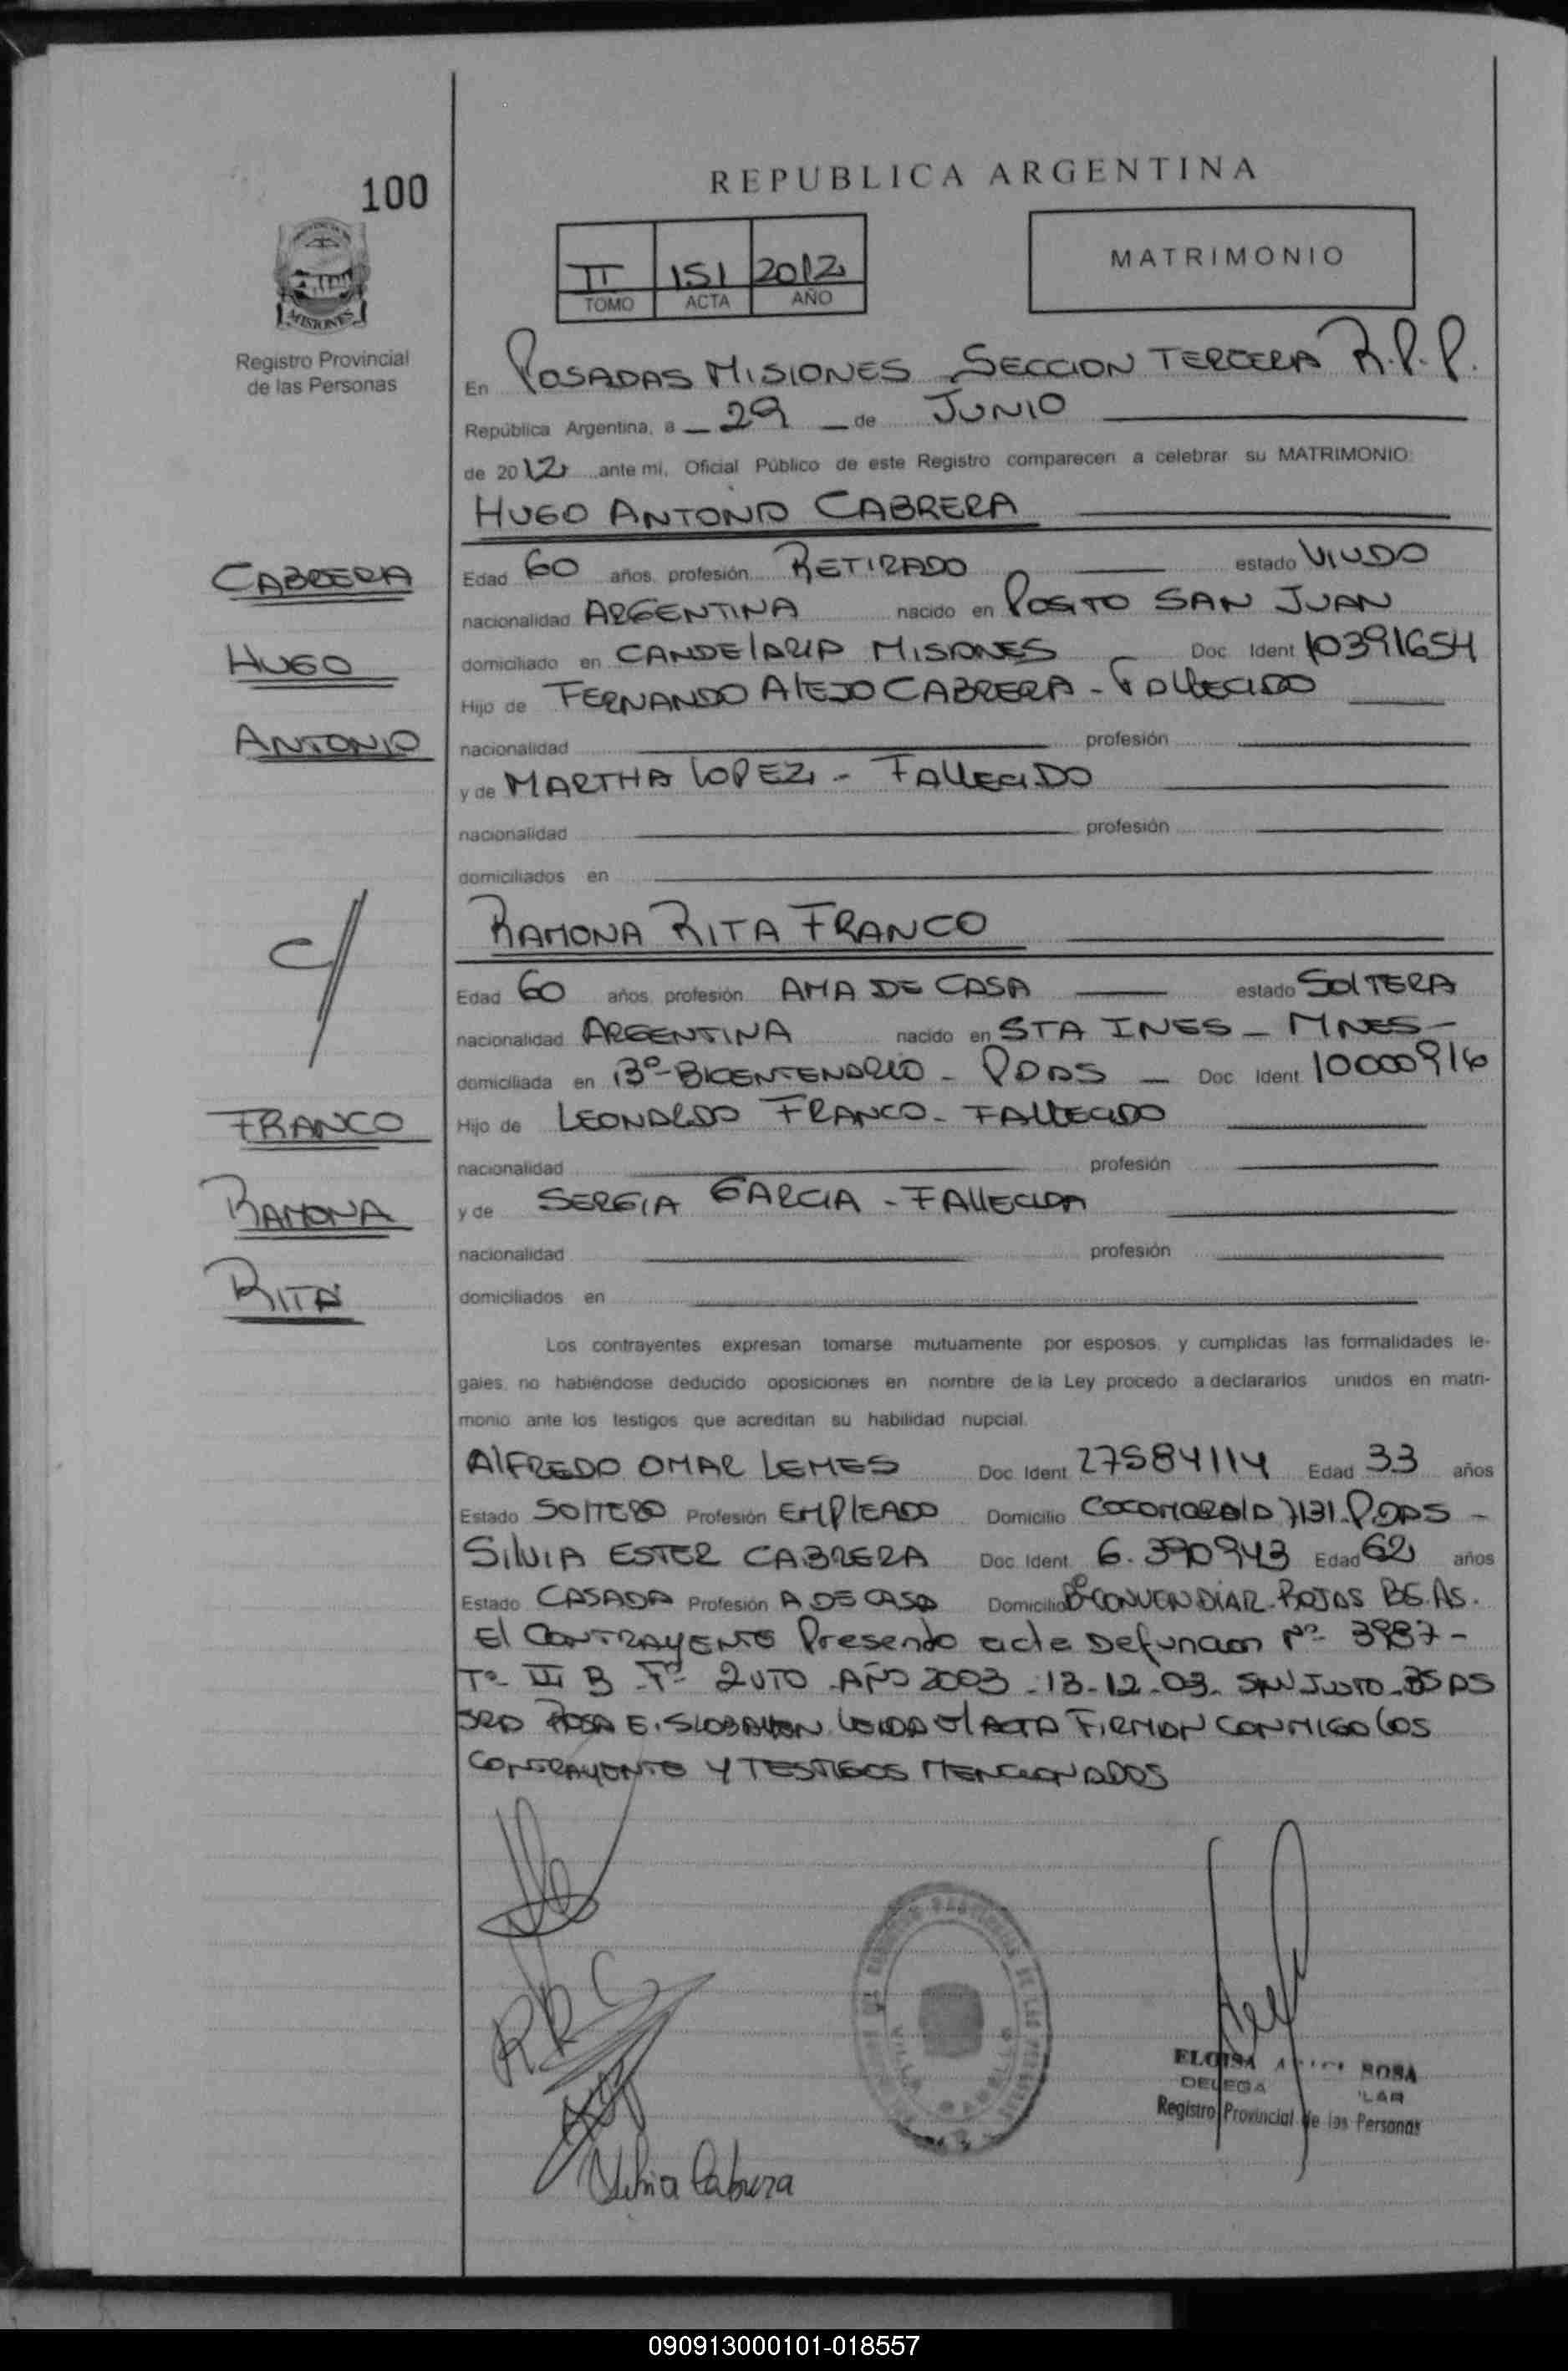 100
REPUBLICA ARGENTINA
II 151 2012
TOMO ACTA AÑO
MATRIMONIO
MISIONES
Registro Provincial
de las Personas
En POSADAS MISIONES SECCION TERCERA R.P.P.
República Argentina, a 29 de JUNIO
de 2012 ante mi, Oficial Público de este Registro comparecen a celebrar su MATRIMONIO:
HUGO ANTONIO CABRERA
CABRERA
HUGO
ANTONIO
Edad 60 años, profesión RETIRADO estado VIUDO
nacionalidad ARGENTINA nacido en POSITO SAN JUAN
domiciliado en CANDELARIA MISIONES Doc Ident 10391654
Hijo de FERNANDO ALEJO CABRERA - FALLECIDO
nacionalidad profesión
y de MARTHA LOPEZ - FALLECIDO
nacionalidad profesión
domiciliados en
RAMONA RITA FRANCO
Edad 60 años, profesión AMA DE CASA estado SOLTERA
nacionalidad ARGENTINA nacido en STA INES - MNES -
domiciliada en Bº BICENTENARIO - PDAS - Doc Ident 10000916
FRANCO
RAMONA
RITA
Hijo de LEONARDO FRANCO - FALLECIDO
nacionalidad profesión
y de SERGIA GARCIA - FALLECIDA
nacionalidad profesión
domiciliados en
Los contrayentes expresan tomarse mutuamente por esposos, y cumplidas las formalidades le-
gales, no habiéndose deducido oposiciones en nombre de la Ley procedo a declararlos unidos en matri-
monio ante los testigos que acreditan su habilidad nupcial.
ALFREDO OMAR LEMES Doc Ident 27584114 Edad 33 años
Estado SOLTERO Profesión EMPLEADO Domicilio 7131 PDAS -
SILVIA ESTER CABRERA Doc Ident 6.390943 Edad 62 años
Estado CASADA Profesión A DE CASA Domicilio ROJAS BS.AS.
El CONTRAYENTE Presento acta Defuncion Nº 3987 -
Tº III B Fº 2 VTO AÑO 2003 - 13-12-03 - SAN JUSTO - BS AS
SRA ROSA E. LEIDA El ACTA FIRMAN CONMIGO LOS
CONTRAYENTE Y TESTIGOS MENCIONADOS
Silvia Cabrera
ELOISA ROSA
Registro Provincial de las Personas
090913000101-018557